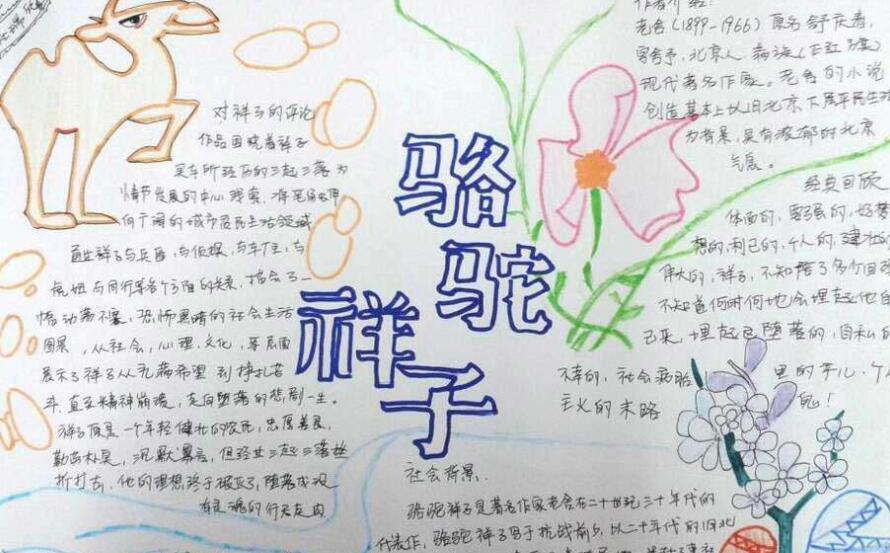 骆驼
祥子
对祥子的评论
作品围绕着祥子
买车所经历的三起三落为
情节发展的中心线索,将笔触伸
向广阔的城市居民生活领域
通过祥子与兵匪,与侦探,与车厂主,与
虎妞与同行等各个方面的关系,描绘了一
幅动荡不宁,恐怖黑暗的社会生活
图景,从社会,心理,文化,等层面
展示了祥子从充满希望到挣扎苦
斗直至精神崩溃,走向堕落的悲剧一生。
祥子原是一个年轻健壮的农民,忠厚善良,
勤劳朴具,沉默寡言,但经过三起三落
折打击,他的理想终于破灭了,堕落成没
有灵魂的行尸走肉
作者介绍:
老舍(1899-1966)原名舒庆春,
字舍予,北京人
现代著名作家。老舍的小说
创造基本上以旧北京下层平民生活
为背景,具有浓郁的北京
气息。
经典回顾
体面的,要强的,好梦
想的,利己的,个人的,健壮的
伟大的,祥子,不知陪了多少回
不知道何时何地会埋起他自
己来,埋起这堕落的,自私的
不幸的,社会病胎里的产儿,个人
主义的末路鬼!
社会背景
骆驼祥子是著名作家老舍在二十世纪三十年代的
代表作,骆驼祥子写于抗战前夕,以二十年代的旧北